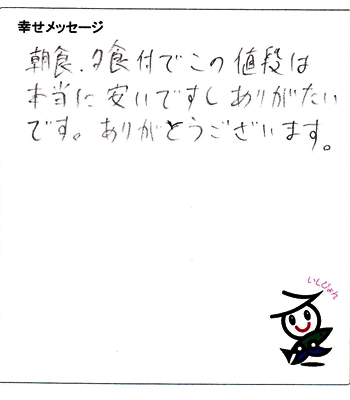 幸せメッセージ
朝食、夕食付でこの値段は
本当に安いですしありがたい
です。ありがとうございます。
いしぴょん